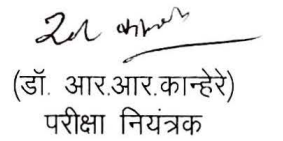 (डॉ. आर.आर.कान्हेरे)
परीक्षा नियंत्रक